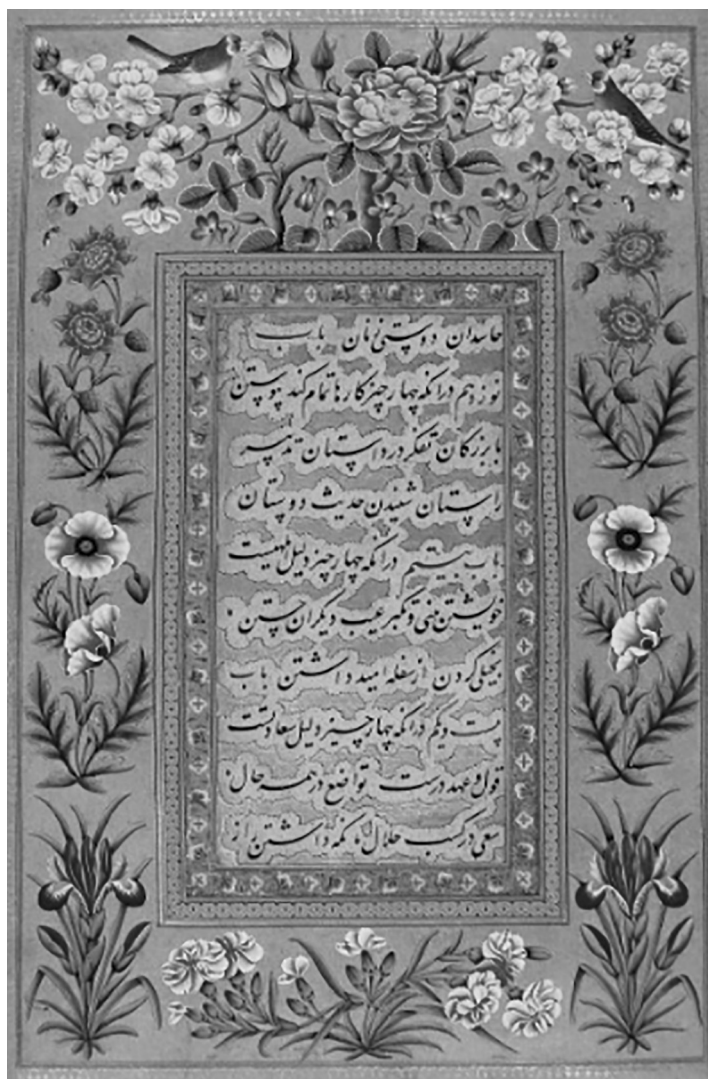 حاسدان دوستی زنان باب
نوزدهم درانکه چهار چیز کارها تمام کند پیوستن
بابزرکان تفکر در داستان تدبیر
راستان شنیدن حدیث دوستان
باب بیستم درانکه چهار چیز دلیل
خویشتن بینی و تکبر عیب دیکران جستن
بخیلی کردن از سفله امید داشتن باب
بیست ویکم درانکه چهار چیز دلیل سعادتست
قول و عهد درست تواضع درهمه حال
سعی درکسب حلال نکه داشتن از